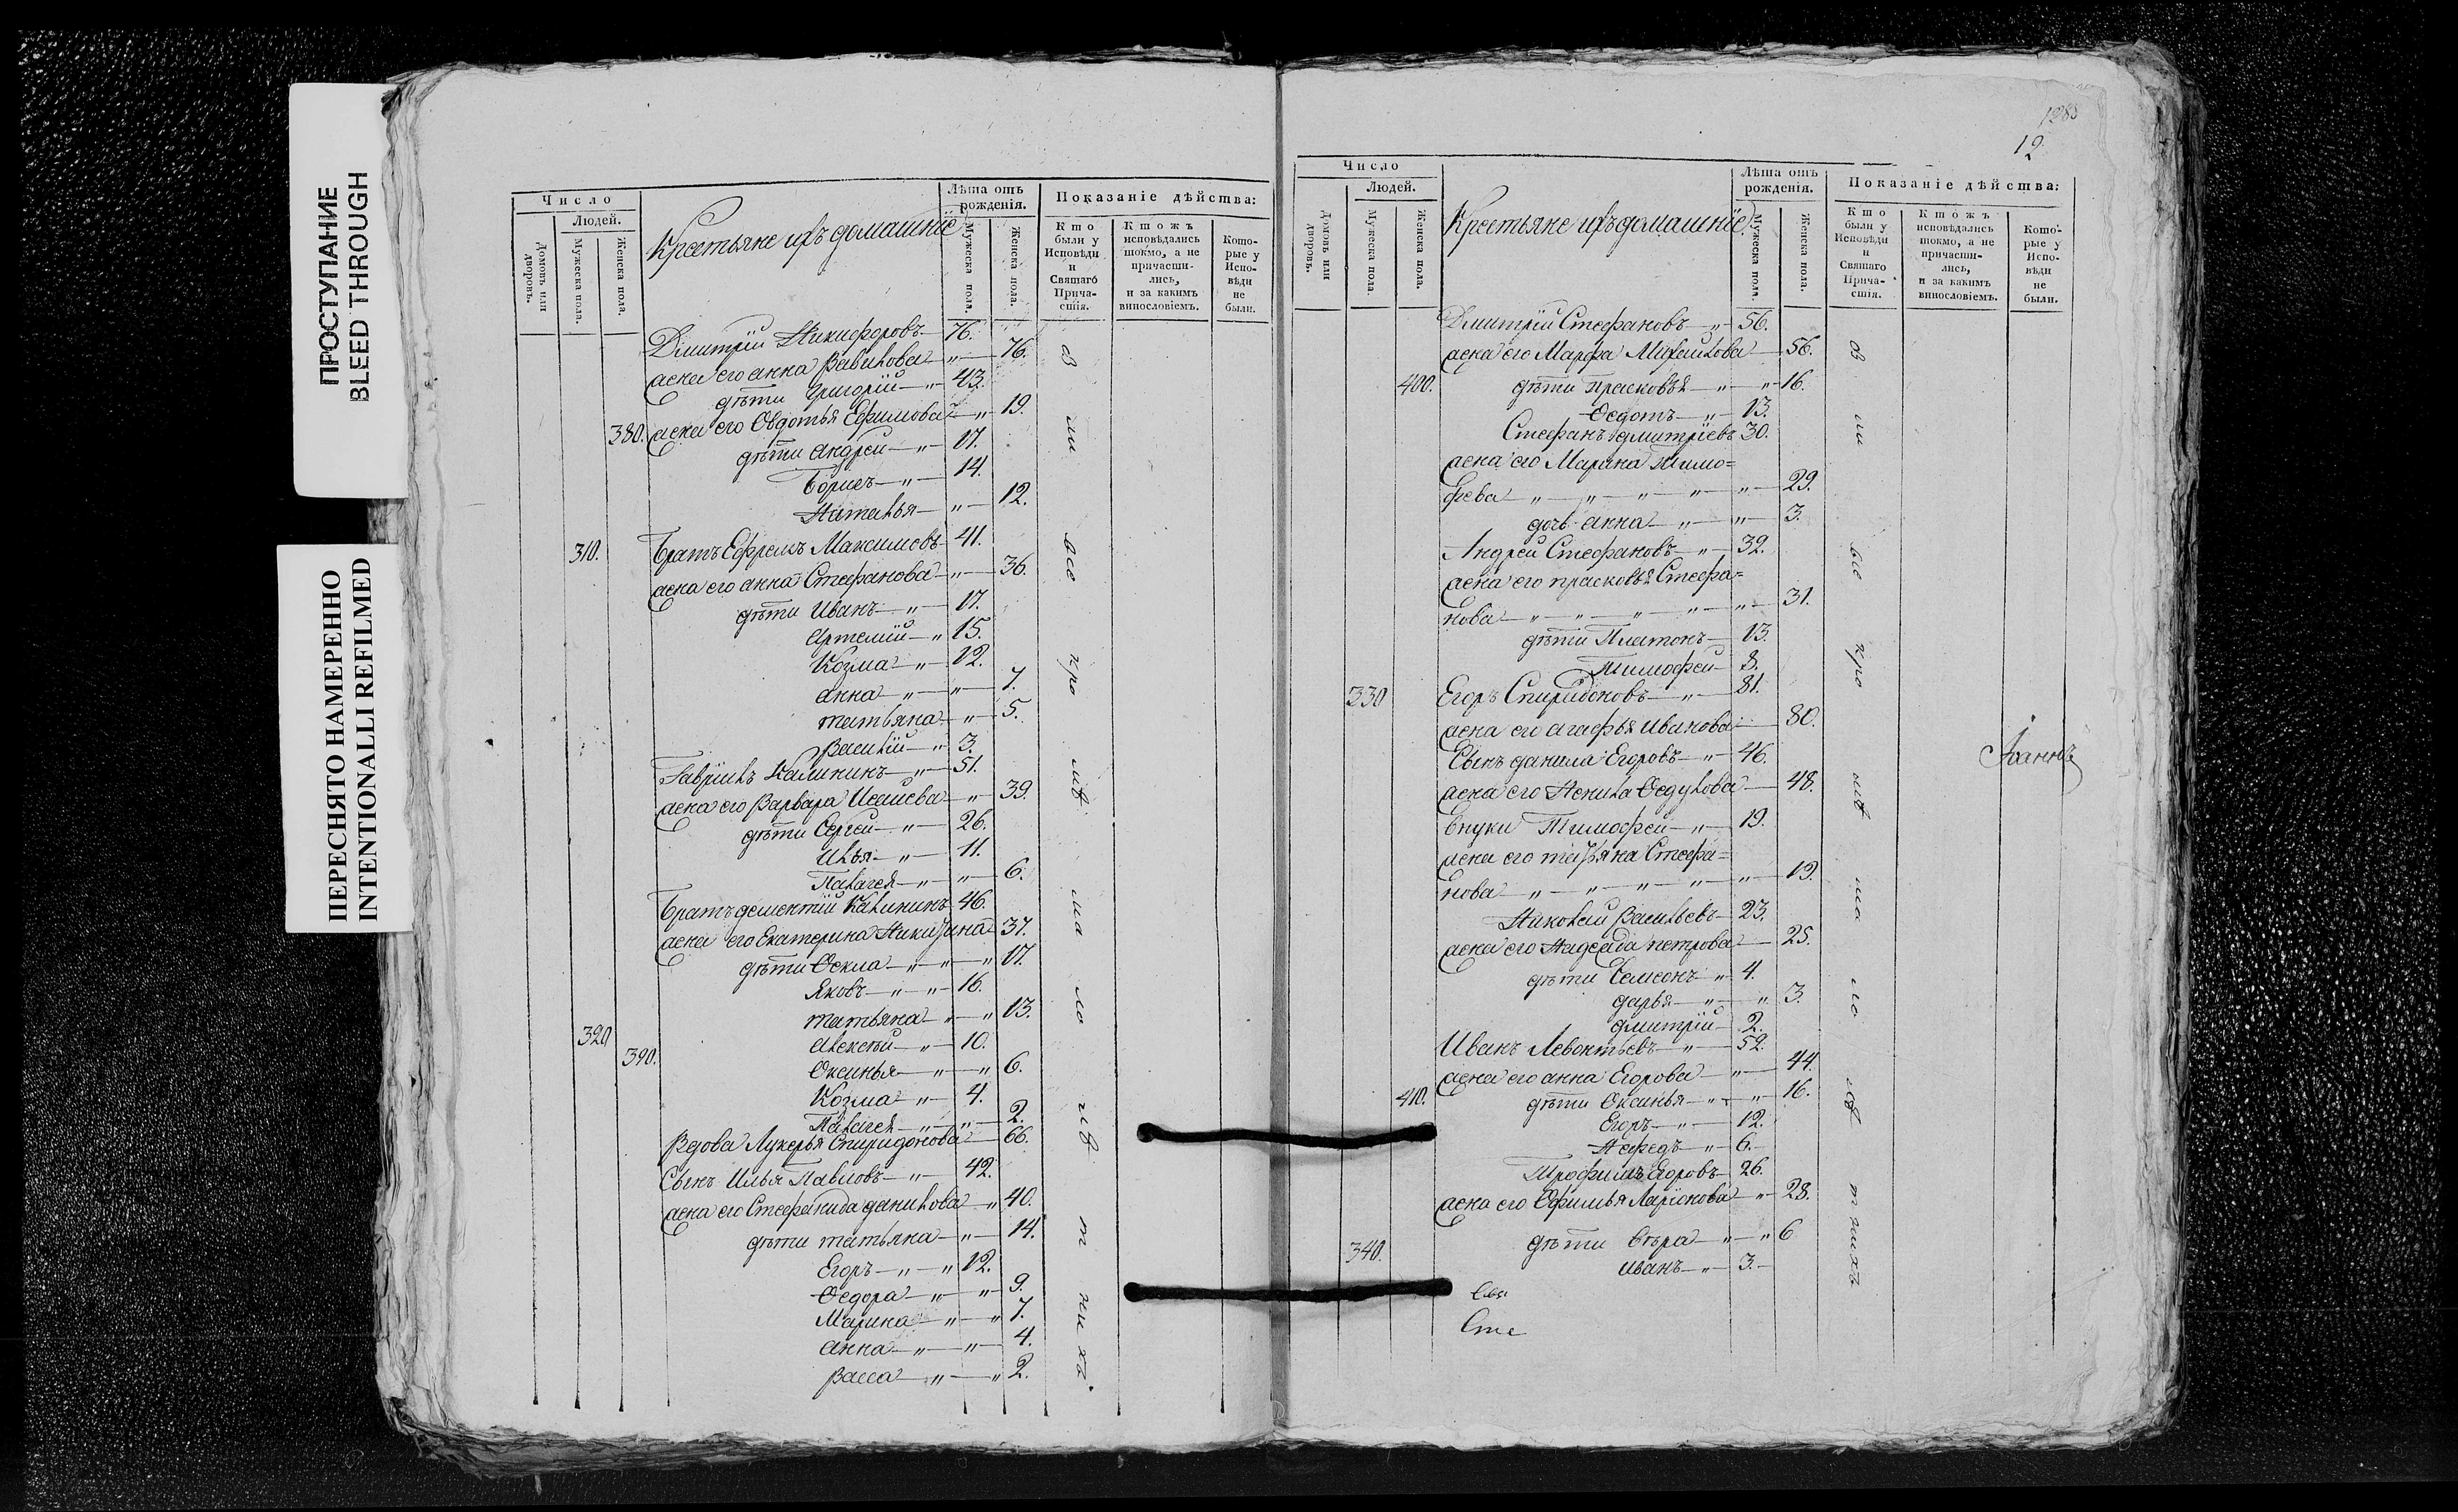 ПРОСТУПАНИЕ
BLEED THROUGH
ПЕРЕСНЯТО НАМЕРЕННО
INTENTIONALLI REFILMED
Число
Людей.
Домовъ или дворовъ.
Мужеска пола.
Женска пола.
Крестьяне ихъ домашнїе
Лѣта отъ рожденія.
Мужеска пола.
Женска пола.
Показаніе дѣйства:
Кто были у Исповѣди и Святаго Прича-стія.
Ктожъ исповѣдались токмо, а не причасти-лись, и за какимъ винословіемъ.
Кото-рые у Испо-вѣди не были.
Дімитрїй Никифоровъ 76.
жена его анна Вавилова 76.
дѣти Григорїй 43.
380. жена его Овдотья Ефимова 19.
дѣти андрей 17.
Борисъ 14.
Наталья 12.
310. Братъ Ефремъ Максимовъ 41.
жена его анна Стефанова 36.
дѣти Иванъ 17.
артемїй 15.
Козма 12.
анна 7.
татьяна 5.
Василїй 3.
Гаврїилъ Калининъ 51.
жена его Варвара Исаиева 39.
дѣти Сергей 26.
Илья 11.
Палагея 6.
Братъ дементїй Калининъ 46.
жена его Екатерина Никитина 37.
дѣти Ѳекла 17.
Яковъ 16.
татьяна 13.
320 алексѣй 10.
390. Оксинья 6.
Козма 4.
Палагея 2.
Вдова Лукерья Спиридонова 66.
Сынъ Илья Павловъ 42.
жена его Стефанида данилова 40.
дѣти татьяна 14.
Егоръ 12.
Ѳедора 9.
Марина 7.
анна 4.
Васса 2.
1283
12
Число
Людей.
Домовъ или дворовъ.
Мужеска пола.
Женска пола.
Крестьяне ихъ домашнїе
Лѣта отъ рожденія.
Мужеска пола.
Женска пола.
Показаніе дѣйства:
Кто были у Исповѣди и Святаго Прича-стія.
Ктожъ исповѣдались токмо, а не причасти-лись, и за какимъ винословіемъ.
Кото-рые у Испо-вѣди не были.
Дмитрїй Стефановъ 56.
жена его Марфа Михайлова 56.
400. дѣти прасковья 16.
Ѳедотъ 13.
Стефанъ дмитрїевъ 30.
жена его Марина Тимо=
феева 29.
дочь анна 3.
Андрей Стефановъ 32.
жена его прасковья Стефа=
нова 31.
дѣти Платонъ 13.
Тимофей 8.
330 Егоръ Спиридоновъ 81.
жена его агафья Иванова 80.
Сынъ данила Егоровъ 46.
жена его Ѳедулова 48.
внуки Тимофей 19.
жена его татьяна Стефа=
нова 19.
Николай Васильевъ 23.
жена его Надежда петрова 25.
дѣти Семенъ 4.
дарья 3.
дмитрїй 2.
Иванъ Левонтьевъ 52.
жена его анна Егорова 44.
410. дѣти Оксинья 16.
Егоръ 12.
Нефедъ 6.
Трофимъ Егоровъ 26.
жена его Ефимья Ларїонова 28.
дѣти Вѣра 6
340. иванъ 3.
Сте
Іоаннъ